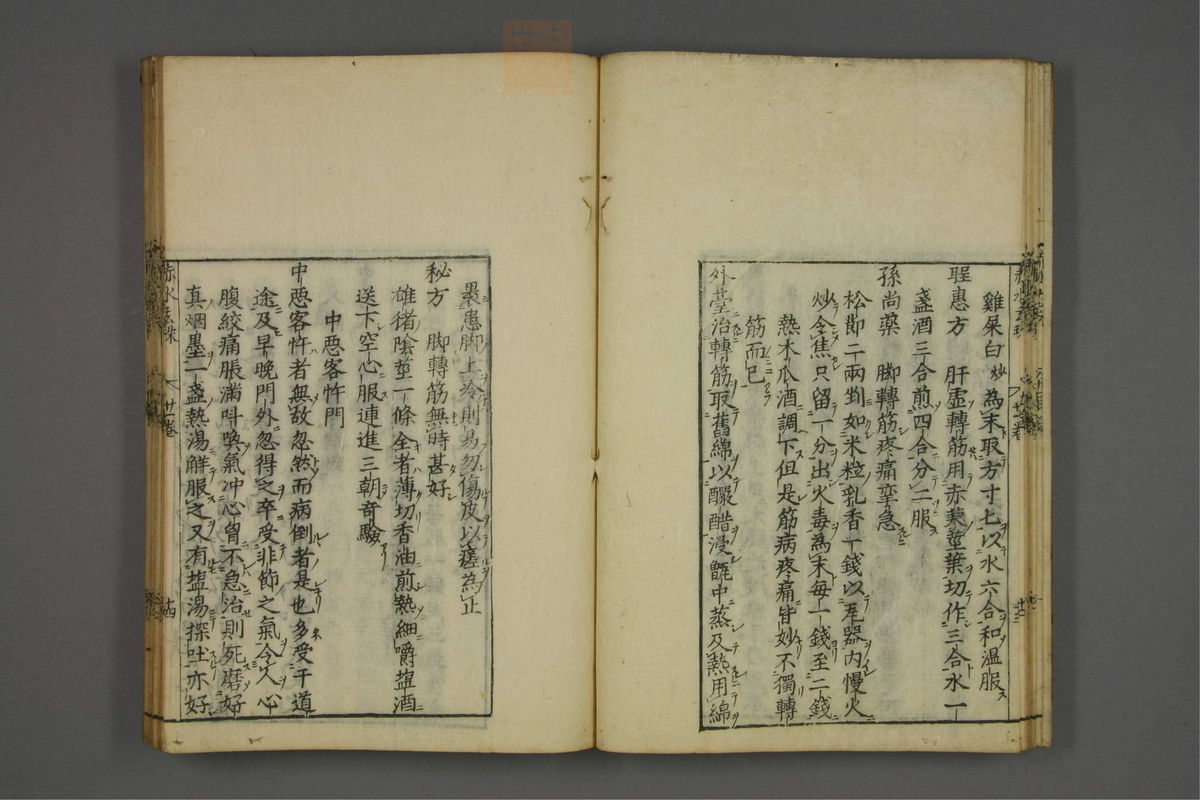 雞屎白炒為末取方寸匕以水六合和温服
聖惠方　肝虛轉筋用赤蓼莖葉切作三合水一
盞酒三合煎四合分二服
孫尚藥　脚轉筋疼痛攣急
松節二兩剉如米粒乳香一錢以瓦器内慢火
炒令焦只留一分出火毒為末每一錢至二錢
熱木瓜酒調下但是筋病疼痛皆妙不獨轉
筋而已
外臺治轉筋取舊綿以釅醋浸甑中蒸及熱用綿
裹患脚上冷則易勿傷皮以瘥為止
秘方　脚轉筋無時甚好
雄猪陰莖一條全者薄切香油煎熟細嚼盐酒
送下空心服連進三朝奇驗
中惡客忤門
中惡客忤者無故忽然而病倒者是也多受于道
途及早晚門外忽得之卒受非節之氣令人心
腹絞痛脹滿呌喚氣冲心胷不急治則死磨好
真烟墨一盞熱湯觧服之又有盐湯探吐亦好
赤水玄珠　廿二卷　廿四